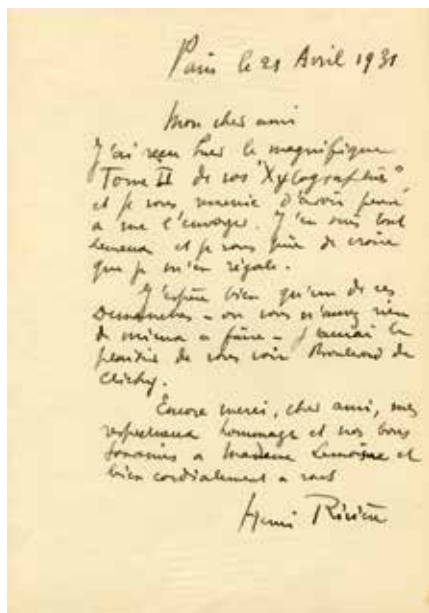 Paris le 21 Avril 1931
Mon cher ami
J'ai reçu hier le magnifique
Tome II de vos "Xylographies",
et je vous remercie d'avoir pensé
a me l'envoyer. J'en suis tout
heureux et je vous prie de croire
que je m'en régale.
J'espère bien qu'un de ces
Dimanches - ou vous n'aurez rien
de mieux a faire - j'aurai le
plaisir de vous voir Boulevard de
Clichy.
Encore merci, cher ami, mes
respectueux hommages et nos bons
souvenirs a Madame Lemoisne et
bien cordialement a vous
Henri Rivière